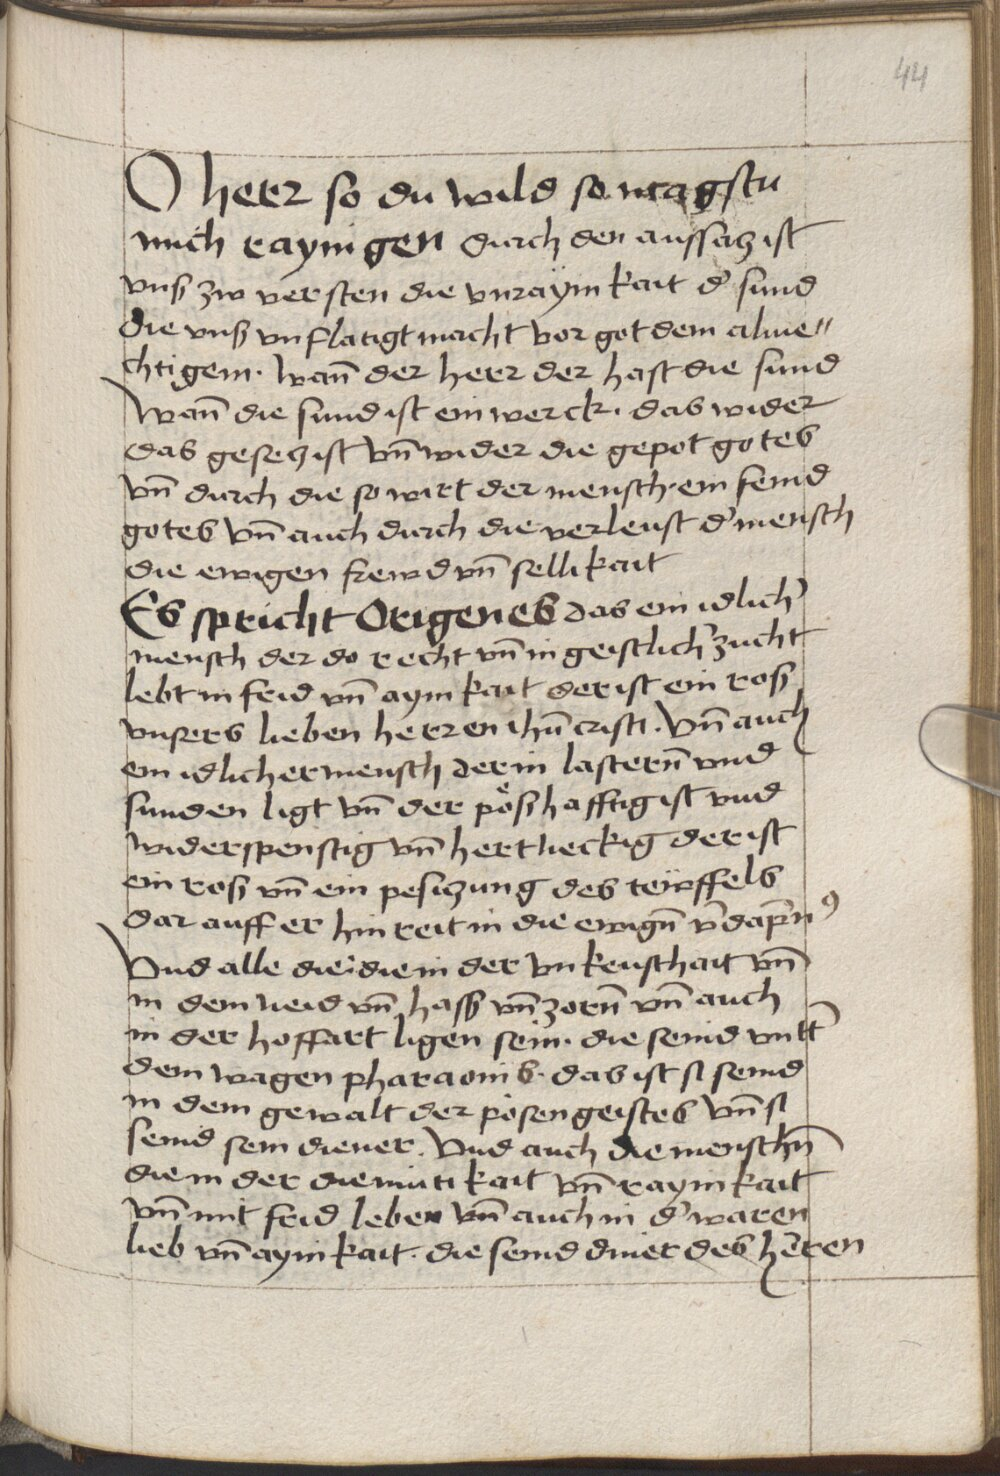 44
O herr so du wild so magstu
mich raynigen durch den aussacz ist
vnß zw versten die vnraÿmkait d' sund
die vnß vnflatigt macht vor got dem alme〃
chtigem. Wan̄ der herr der hast die sund
Wan̄ die sund ist ein werck. das wider
das gesecz ist vn̄ wider die gepot gotes
vn̄ durch die so wirt der mensch ein feind
gotes vn̄ auch durch die verleust d' mensch
die ewigen frewd vn̄ sellikait
Es spricht Origenes das ein idlich'
mensch der do recht vn̄ in geistlich' zucht
lebt in frid vn̄ aynikait der ist ein roß
vnsers lieben herren ihū cristi. Vn̄ auch
ein idlicher mensch der in lastern̄ vnd
sunden ligt vn̄ der pößhafftig ist vnd
widerspenstig vn̄ hertneckig der ist
ein roß vn̄ ein pesiczung des teẅffels
dar auff er hin reit in die ewign̄ v̄dap̄n⁹
Vnd alle die die in der vnkeuschait vn̄
in dem neid vn̄ hass vn̄ zorn̄ vn̄ auch
in der hoffart ligen sein. die seind vntt'
dem wagen pharaonis. das ist si seind
in dem gewalt der pösen geistes vn̄ si
seind sein diener. Vnd auch die menschn̄
die in der diemutikait vn̄ raynikait
vn̄ mit frid leben vn̄ auch in d' waren
lieb vn̄ aynikait. die seind diner des herren